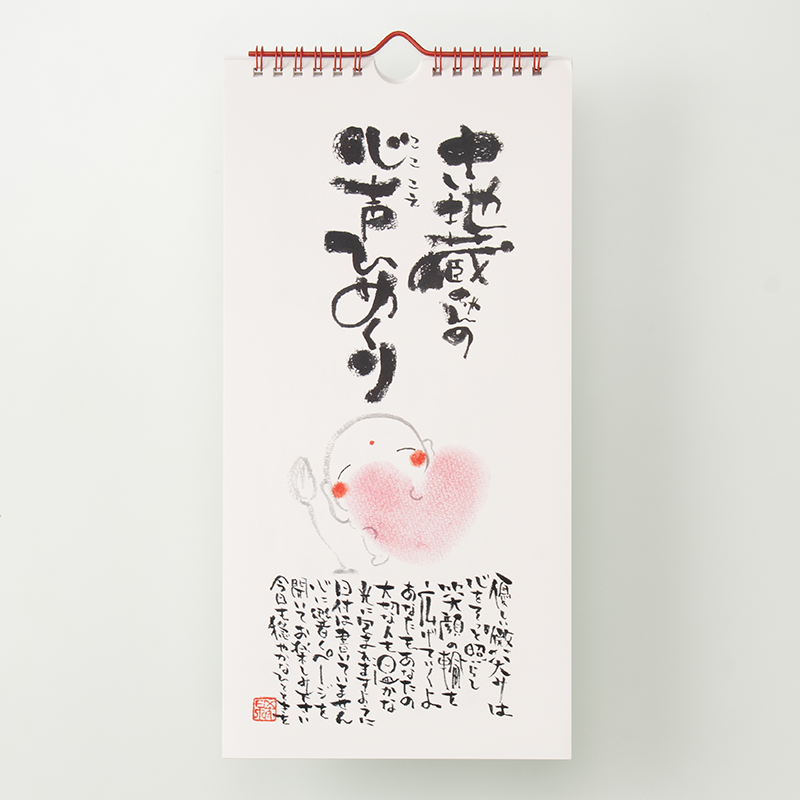 お地蔵さんの
心声ひめくり
ここ こえ
優しい微笑みは
心をそっと照らし
笑顔の輪を
広げていくよ
あなたもあなたの
大切な人も円かな
光に包まれますように
日付は書いていません
心に響くページを
開いてお楽しみください
今日も穏やかなひとときを